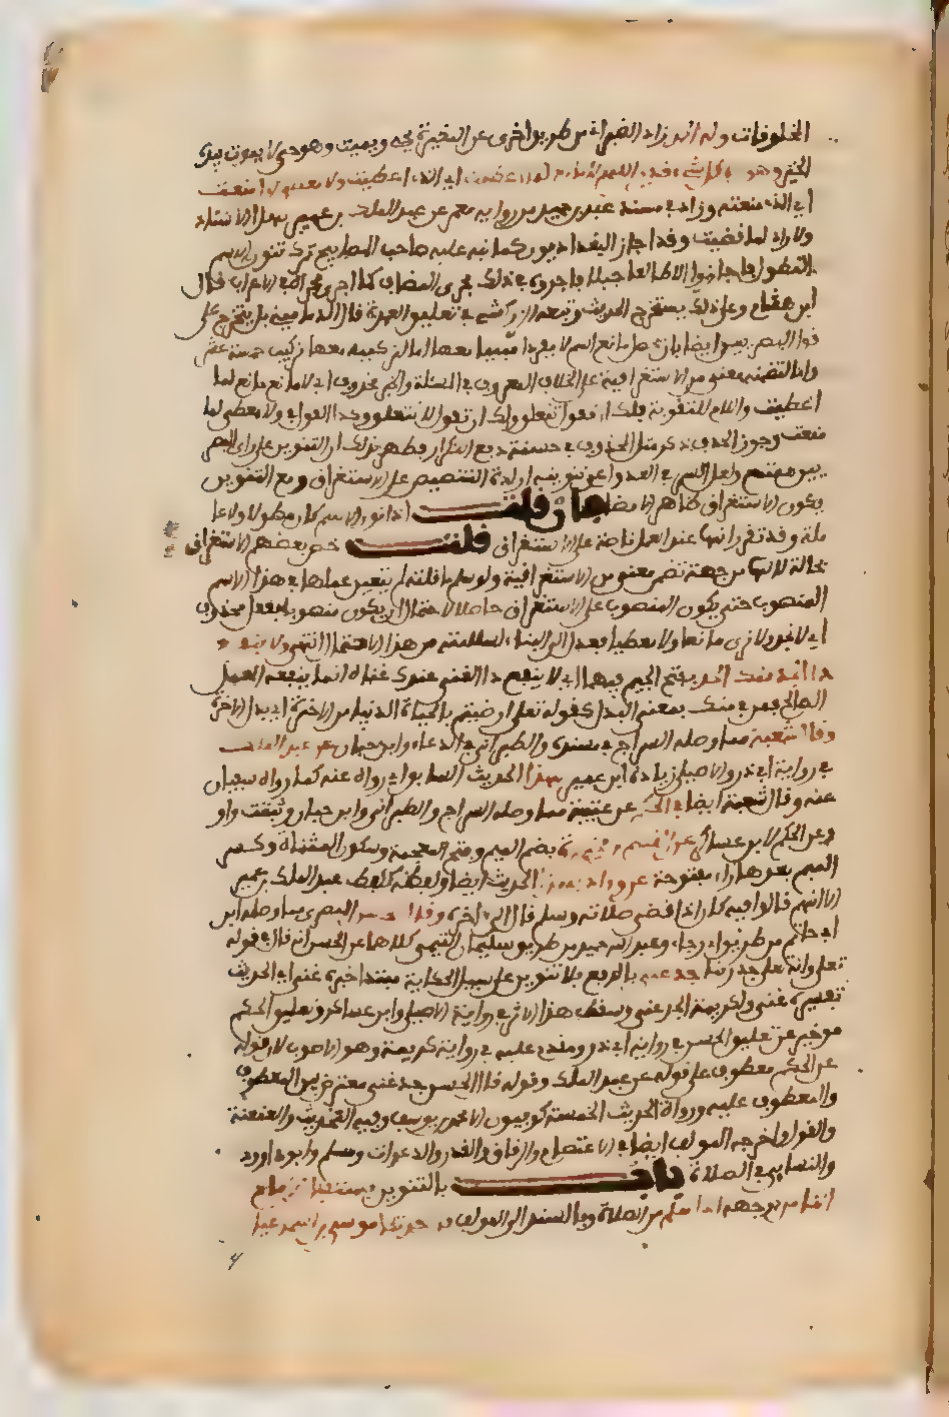 المخلوقات وله الحمد زاد الطبراني من طريق اخرى عن المغيرة يحيي ويميت وهو حي لا يموت بيده
الخير وهو على كل شيء قدير اللهم لا مانع لما اعطيت اي الذي اعطيت ولا معطي لما منعت
اي الذي منعته وزاد في مسند عبد بن حميد من رواية معمر عن عبد الملك بن عمير بهذا الاسناد
ولا راد لما قضيت وقد اجاز البغداديون كما نبه عليه صاحب المصابيح ترك تنوين الاسم
المطول فاجازوا لا طالع جبلا فاجروه في ذلك مجرى المضاف كما اجري مجراه في الاعراب قال
ابن هشام وعلى ذلك يتخرج الحديث وتبعه الزركشي في تعليق العمدة قال الدماميني بل يتخرج على
قول البصريين ايضا بان يجعل مانع اسم لا مفردا مبنيا معها اما لتركيبه معها تركيب خمسة عشر
واما لتضمنه معنى من الاستغراقية على الخلاف المعروف في المسئلة والخبر محذوف اي لا مانع مانع لما
اعطيت واللام للتقوية فلك ان تقول تتعلق ولك ان تقول لا تتعلق وكذا القول في ولا معطي لما
منعت وجوز الحذف ذكر مثل المحذوف وحسنه دفع التكرار فظهر بذلك ان التنوين على راي البصر
يين ممتنع ولعل السر في العدول عن تنوينه ارادة التنصيص على الاستغراق ومع التنوين
يكون الاستغراق ظاهرا لا نصا فان قلت اذا نون الاسم كان مطولا ولا عا
ملة وقد تقرر انها عند العمل ناصة على الاستغراق قلت خص بعضهم الاستغراق
بحالة البناء من جهة تضمن معنى من الاستغراقية ولو سلم ما قلته لم يتعين عملها في هذا الاسم
المنصوب حتى يكون المنصوب على الاستغراق حاصلا لاحتمال ان يكون منصوبا بفعل محذوف
اي لا نجد ولا نرى مانعا ولا معطيا فعدل الى البناء لسلامته من هذا الاحتمال انتهى ولا ينفع
ذا الجد منك الجد بفتح الجيم فيهما اي لا ينفع ذا الغنى عندك غناه انما ينفعه العمل
الصالح فمن في منك بمعنى البدل كقوله تعالى ارضيتم بالحياة الدنيا من الاخرة اي بدل الاخرة
وقال شعبة مما وصله السراج في مسنده والطبراني في الدعاء وابن حبان عن عبد الملك
في رواية ابي ذر والاصيلي زيادة ابن عمير بهذا الحديث السابق اي رواه عنه كما رواه سفيان
عنه وقال شعبة ايضا في الحكم عن عتيبة مما وصله السراج والطبراني وابن حبان وثبتت واو
وعن الحكم لابن عساكر عن القاسم بن مخيمرة بضم الميم وفتح المعجمة وسكون المثناة وكسر
الميم بعدها راء مفتوحة عن وراد بهذا الحديث ايضا ولفظه كلفظ عبد الملك بن عمير
الا انهم قالوا فيه كان اذا قضى صلاته وسلم قال الى اخره وقال الحسن البصري مما وصله ابن
ابي حاتم من طريق ابي رجاء وعبد بن حميد من طريق سليمان التيمي كلاهما عن الحسن انه قال في قوله
تعلى وانه تعلى جد ربنا جد غنى بالرفع بلا تنوين على سبيل الحكاية مبتدا خبره غنى اي الحديث
تفسيره غنى ولكريمة الجد غنى وسقط هذا الاثر في رواية الاصيلي وابن عساكر وتعليق الحكم
موخر عن تعليق الحسن في رواية ابي ذر ومقدم عليه في رواية كريمة وهو الاصوب لان قوله
عن الحكم معطوف على قوله عن عبد الملك وقوله قال الحسن جد غنى معترض بين المعطوف
والمعطوف عليه ورواة الحديث الخمسة كوفيون الا محمد بن يوسف وفيه التحديث والعنعنة
والقول واخرجه المولف ايضا في الاعتصام والرقاق والقدر والدعوات ومسلم وابو داوود
والنسايي في الصلاة باب بالتنوين يستقبل الامام
الناس بوجهه اذا سلم من الصلاة وبالسند الى المولف قال حدثنا موسى بن اسمعيل